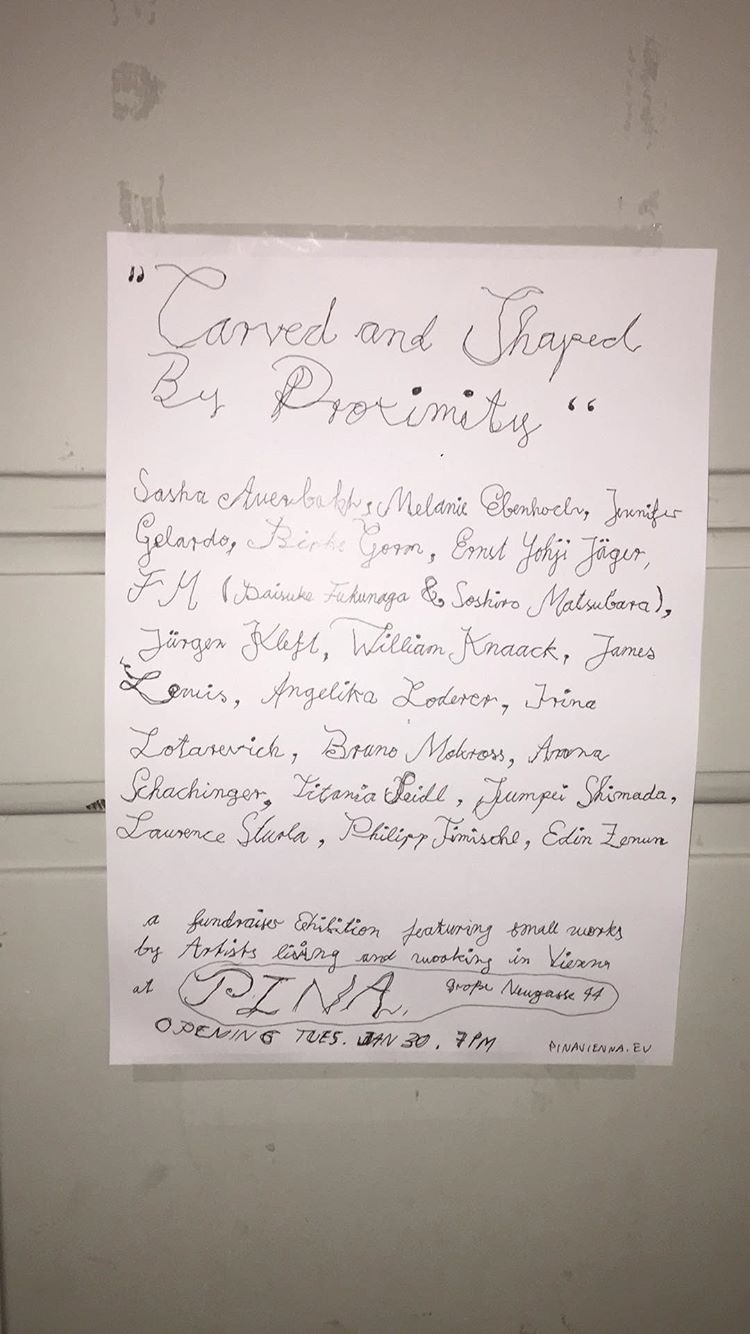 "Carved and Shaped
By Proximity"
Sasha Auerbakh, Melanie Ebenhoch, Jennifer
Gelardo, Birke Gorm, Ernst Yohji Jäger,
FM (Daisuke Fukunaga & Soshiro Matsubara),
Jürgen Kleft, William Knaack, James
Lewis, Angelika Loderer, Irina
Lotarevich, Bruno Mokross, Anna
Schachinger, Titania Seidl, Jumpei Shimada,
Laurence Sturla, Philipp Timischl, Edin Zenun
a fundraiser Exhibition featuring small works
by Artists living and working in Vienna
at PINA, Große Neugasse 44
OPENING TUES. JAN 30. 7PM
PINAVIENNA.EU